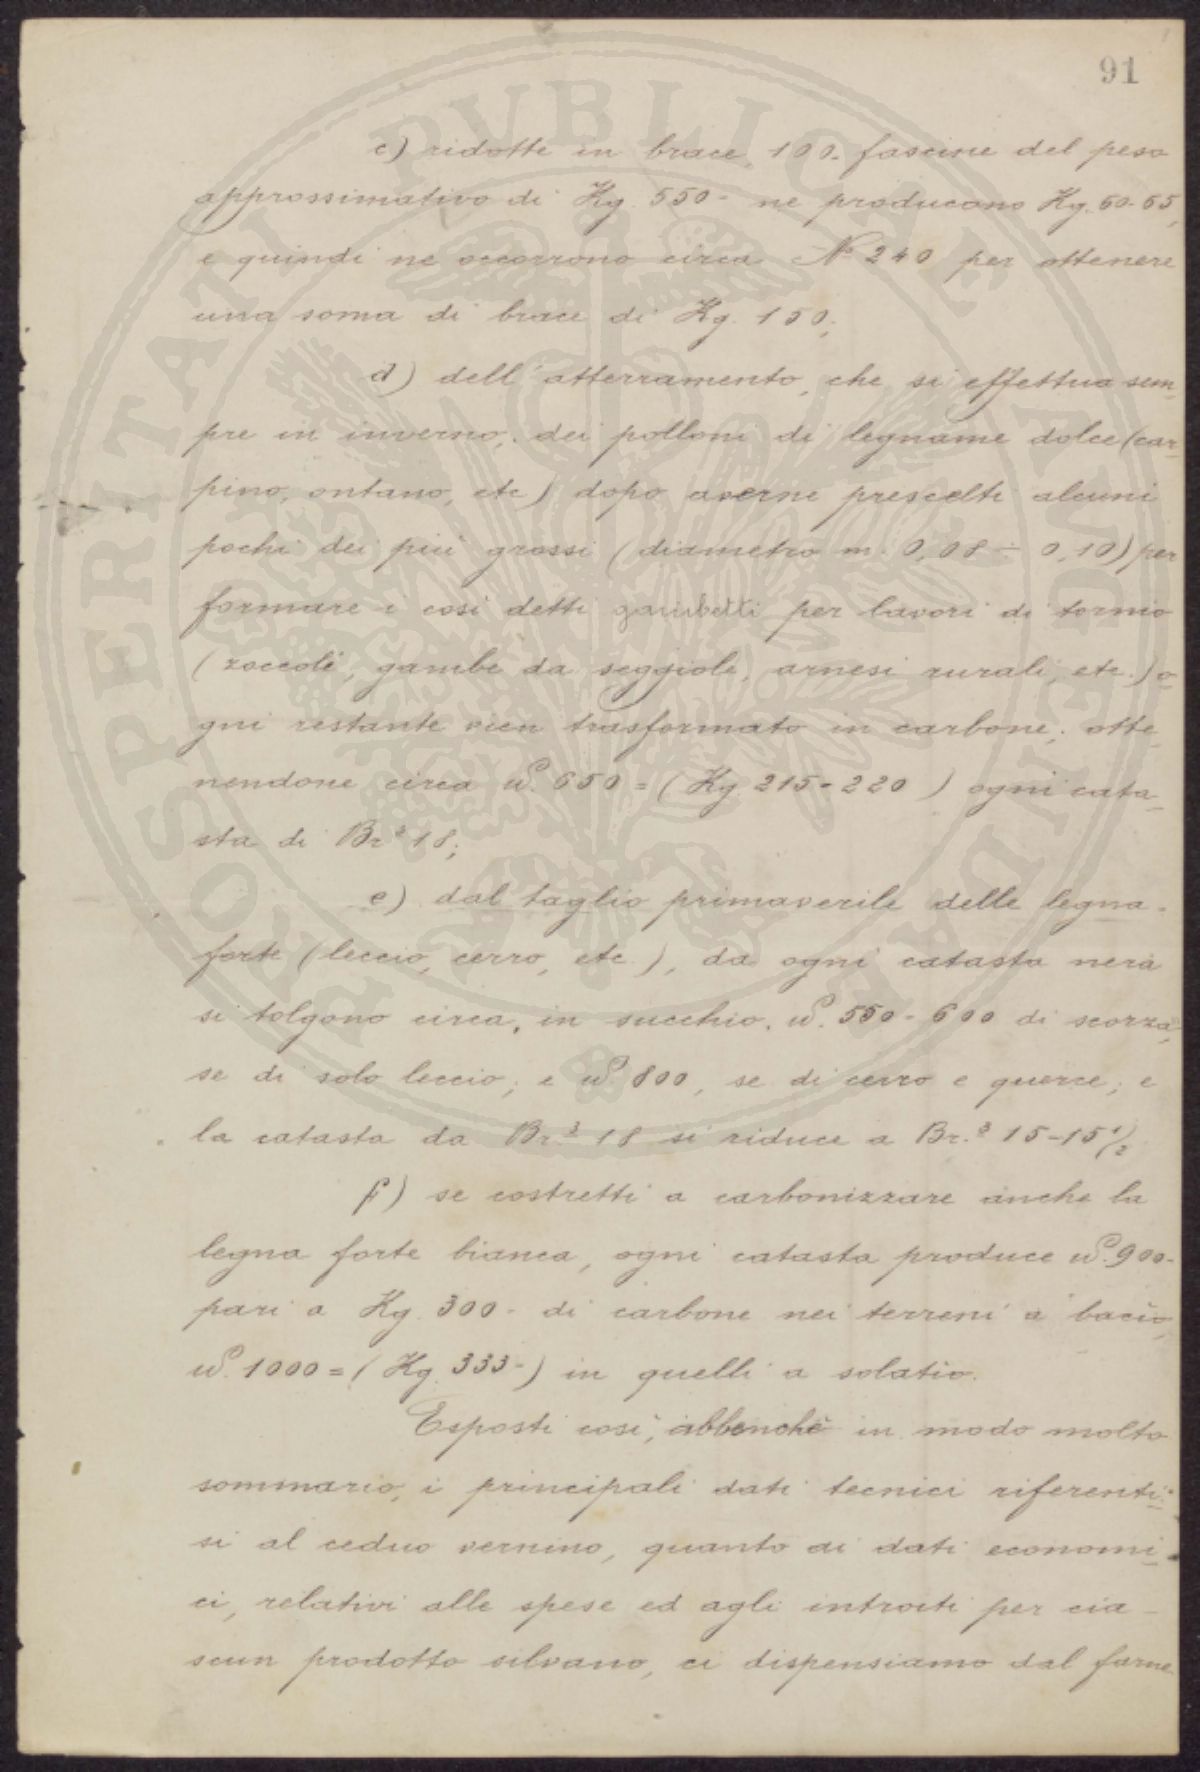 91
c) ridotte in brace 100. fascine del peso
approssimativo di Kg. 550- ne producono Kg. 60-65,
e quindi ne occorrono circa N° 240 per ottenere
una soma di brace di Kg. 150;
d) dell'atterramento, che si effettua sem-
pre in inverno, dei polloni di legname dolce (car-
pino, ontano, etc) dopo averne prescelti alcuni
pochi dei più grossi (diametro m. 0,08 ÷ 0,10) per
formare i così detti gambetti per lavori di tornio
(zoccoli, gambe da seggiole, arnesi rurali, etc.) o-
gni restante vien trasformato in carbone; otte-
nendone circa 650 = (Kg. 215-220) ogni cata-
sta di Br.³ 18;
e) dal taglio primaverile delle legna
forte (leccio, cerro, etc.), da ogni catasta nera
si tolgono circa, in succhio, 550-600 di scorza,
se di solo leccio; e 800, se di cerro e querce; e
la catasta da Br.³ 18 si riduce a Br.³ 15-15 1/2
f) se costretti a carbonizzare anche la
legna forte bianca, ogni catasta produce 900-
pari a Kg. 300- di carbone nei terreni a bacìo,
1000 = (Kg. 333-) in quelli a solatio.
Esposti così, abbenchè in modo molto
sommario, i principali dati tecnici riferenti-
si al ceduo vernino, quanto ai dati economi-
ci, relativi alle spese ed agli introiti per cia-
scun prodotto silvano, ci dispensiamo dal farne
PROSPERITATI PVBLICAE AVGENDAE